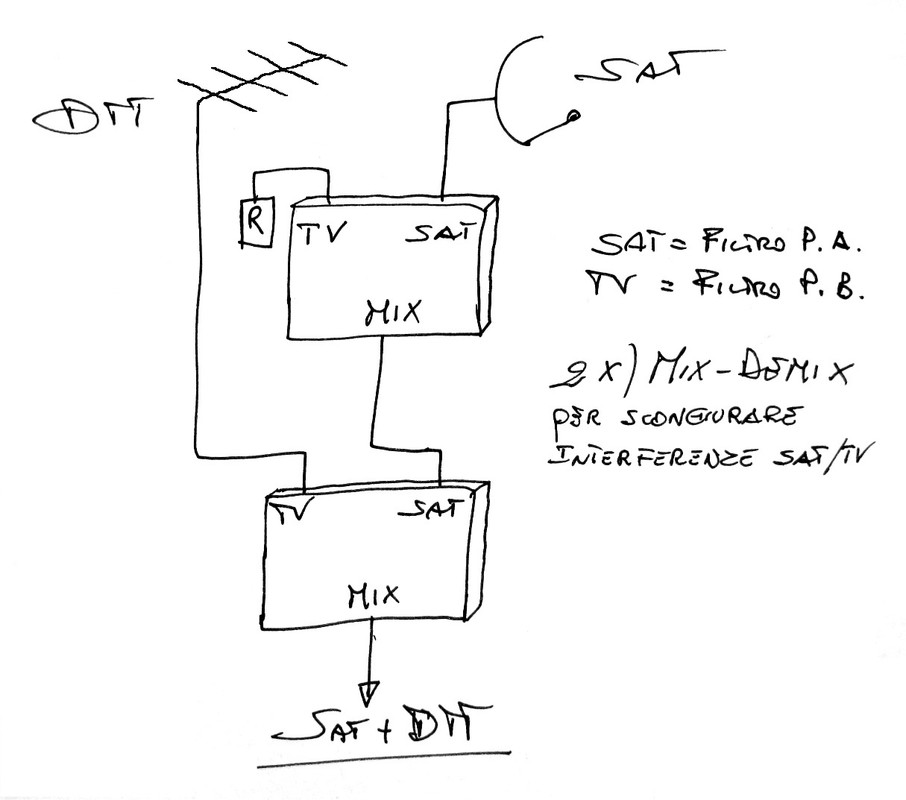 DTT
SAT
R
TV SAT
MIX
SAT = FILTRO P.A.
TV = FILTRO P.B.
2X) MIX-DEMIX
PER SCONGIURARE
INTERFERENZE SAT/TV
TV SAT
MIX
SAT + DTT